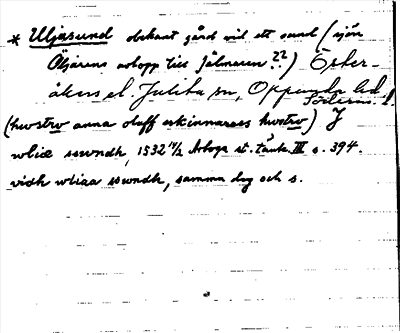 * Uljasund okänt gård vid ett sund (sjön
Öljarens avlopp till Hjälmaren??) Öster-
åkers el. Julita sn, Oppunda hd
Söderm.!
(hwstrv anna oluff skinnaress hwstrv) J
wliæ sswndh, 1532 14/2 Arboga st. tänk. III s. 394.
vidh wliaa sswndh, samma dag och s.